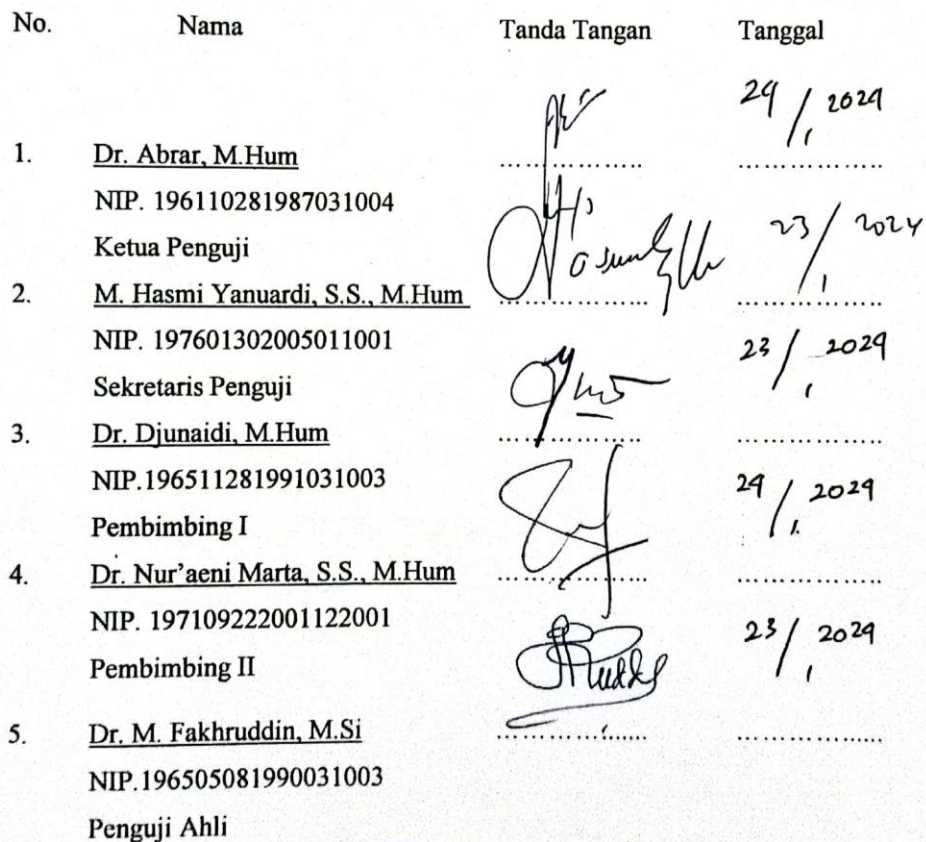 No. Nama Tanda Tangan Tanggal
24 / 1 2024
1. Dr. Abrar, M.Hum .................. ..................
NIP. 196110281987031004
Ketua Penguji 23 / 1 2024
2. M. Hasmi Yanuardi, S.S., M.Hum .................. ..................
NIP. 197601302005011001 23 / 1 2024
Sekretaris Penguji
3. Dr. Djunaidi, M.Hum .................. ..................
NIP.196511281991031003 24 / 1 2024
Pembimbing I
4. Dr. Nur’aeni Marta, S.S., M.Hum .................. ..................
NIP. 197109222001122001 23 / 1 2024
Pembimbing II
5. Dr. M. Fakhruddin, M.Si .................. ..................
NIP.196505081990031003
Penguji Ahli